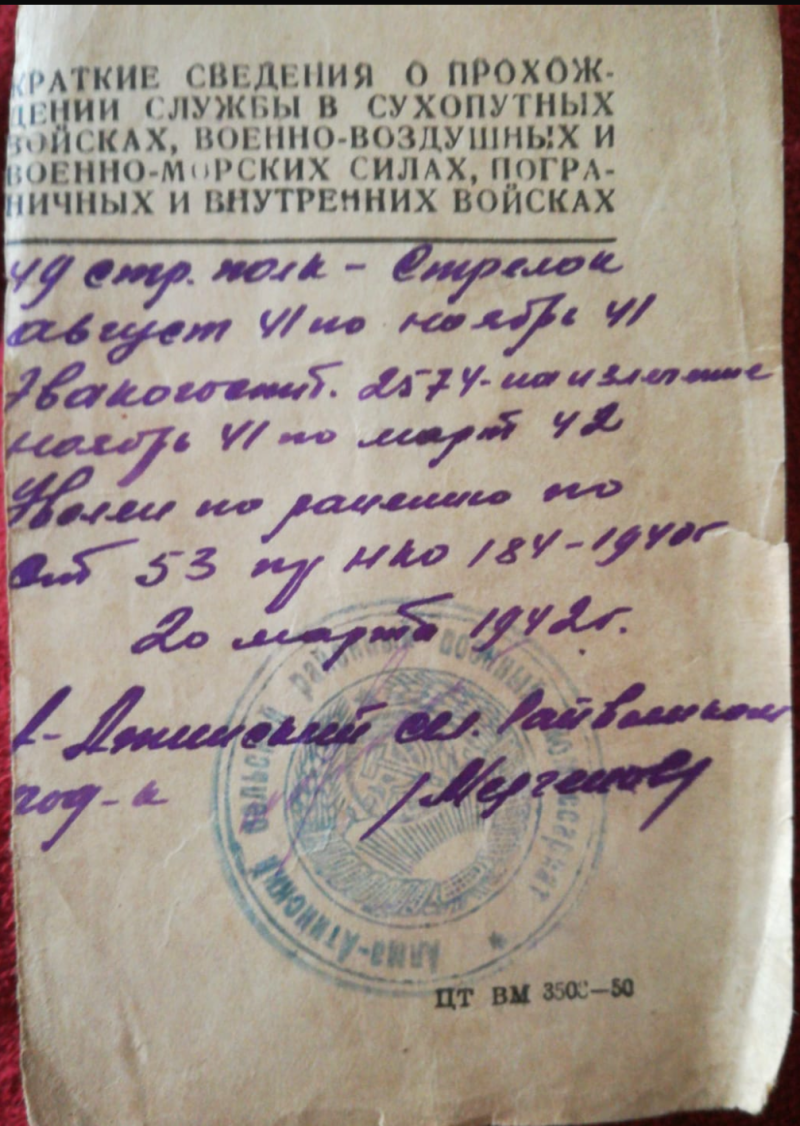 КРАТКИЕ СВЕДЕНИЯ О ПРОХОЖ-
ДЕНИИ СЛУЖБЫ В СУХОПУТНЫХ
ВОЙСКАХ, ВОЕННО-ВОЗДУШНЫХ И
ВОЕННО-МОРСКИХ СИЛАХ, ПОГРА-
НИЧНЫХ И ВНУТРЕННИХ ВОЙСКАХ
49 стр. полк - Стрелок
август 41 по ноябрь 41
Эвакогоспит. 2574 - на излечение
ноябрь 41 по март 42
Уволен по ранению по
ст 53 пр НКО 184-1940г
20 марта 1942г.
А-Атинский сел. Райвоенком
под-к /Мергенов/
Алма-Атинский сельский районный военный комиссариат
ЦТ ВМ 3503-50